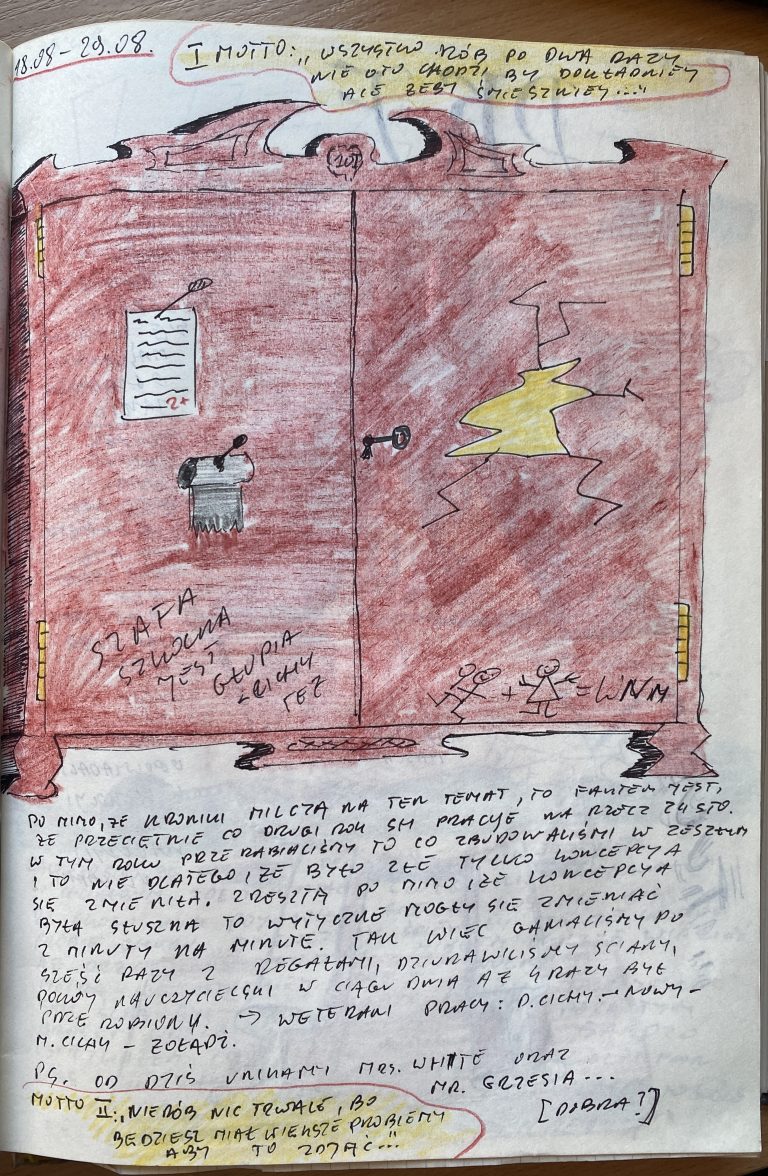 18.08-29.08.
I MOTTO: „WSZYSTKO RÓB PO DWA RAZY
NIE OTO CHODZI BY DOKŁADNIEY
ALE ŻEBY ŚMIESZNIEY..."
2+
SZAFA
SZKOLNA
JEST
GŁUPIA
CICHY
TEŻ
+ =
PO MIMO, ŻE KRONIKI MILCZĄ NA TEN TEMAT, TO FAKTEM JEST,
ŻE PRZECIĘTNIE CO DRUGI ROK SH PRACYJE NA RZECZ ZHSTO.
W TYM ROKU PRZERABIALIŚMY TO CO ZBUDOWALIŚMY W ZESZŁYM
I TO NIE DLATEGO IŻE BYŁO ZŁE TYLKO KONCEPCYA
SIĘ ZMIENIŁA. ZRESZTĄ PO MIMO IŻE KONCEPCYA
BYŁA SŁUSZNA TO WYTYCZNE MOGŁY SIĘ ZMIENIAĆ
Z MINUTY NA MINUTĘ. TAK WIĘC GANIALIŚMY PO
SZEŚĆ RAZY Z REGAŁAMI, DZIURAWILIŚMY ŚCIANY,
POKÓY NAUCZYCIELSKI W CIĄGU DNIA AŻ 4 RAZY BYŁ
PRZEROBIONY. → WETERANI PRACY: D. CICHY. – NOWY –
M. CICHY – ŻOŁĄDŹ.
PS. OD DZIŚ UNIKAMY MRS. WHITE ORAZ
MR. GRZESIA...
[DOBRA?]
MOTTO II: „NIE RÓB NIC TRWALE, BO
BĘDZIESZ MIAŁ WIĘKSZE PROBLEMY
ABY TO ZDJĄĆ..."